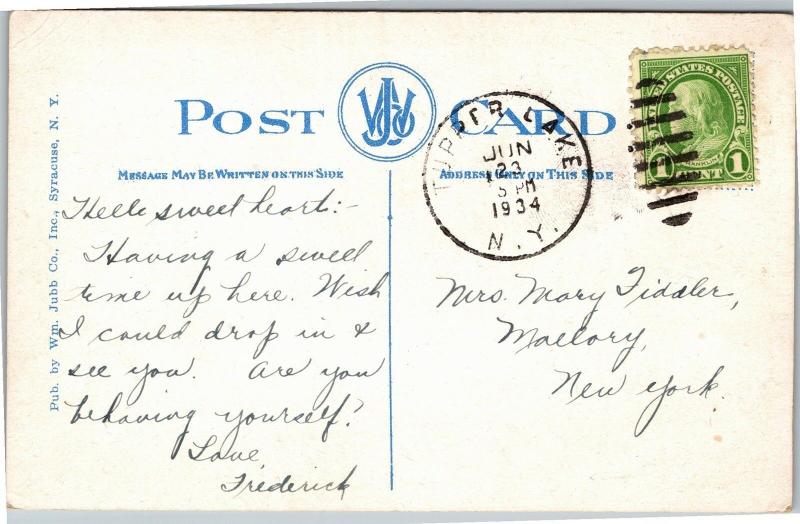 POST CARD
WJC
TUPPER LAKE
JUN
23
5 PM
1934
N.Y.
UNITED STATES POSTAGE
FRANKLIN
1 CENT 1
MESSAGE MAY BE WRITTEN ON THIS SIDE
ADDRESS ONLY ON THIS SIDE
Pub. by Wm. Jubb Co., Inc., Syracuse, N. Y.
Hello sweet heart:-
Having a swell
time up here. Wish
I could drop in &
see you. Are you
behaving yourself?
Love
Frederick
Mrs. Mary Fiddler,
Mallory,
New York.